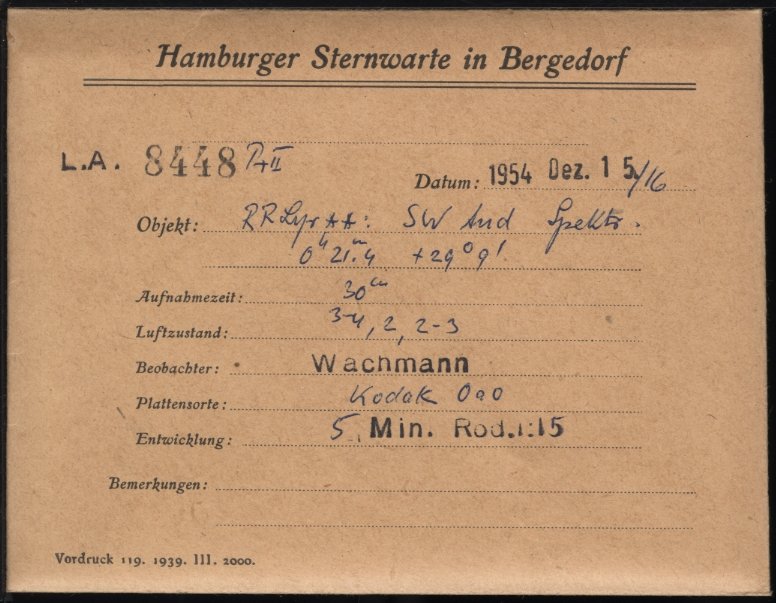 Hamburger Sternwarte in Bergedorf
L.A. 8448 P+II
Datum: 1954 Dez. 15./16
Objekt: RR Lyr **: SW And Spektr.
0h 21m.4 +29° 9'
Aufnahmezeit: 30m
Luftzustand: 3-4, 2, 2-3
Beobachter: Wachmann
Plattensorte: Kodak OaO
Entwicklung: 5 Min. Rod.1:15
Bemerkungen:
Vordruck 119. 1939. III. 2000.